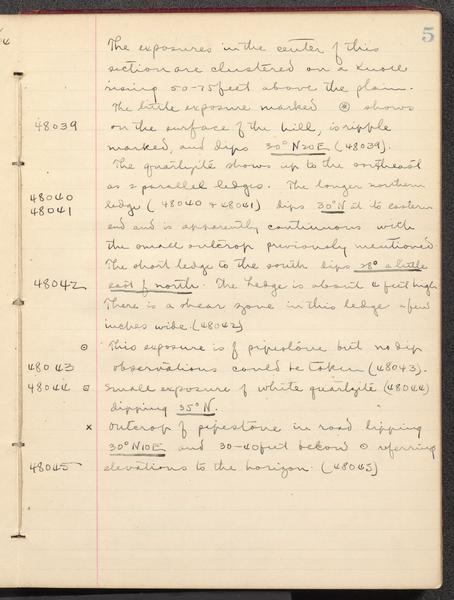 5
The exposures in the center of this
section are clustered on a knoll
rising 50-75 feet above the plain.
The little exposure marked ⊛ shows
48039 on the surface of the hill, is ripple
marked, and dips 30° N20E (48039).
The quartzite shows up to the northeast
as 2 parallel ledges. The longer northern
48040
48041 ledge (48040 + 48041) dips 30° N at its eastern
end and is apparently continuous with
the small outcrop previously mentioned.
The short ledge to the south dips 28° a little
48042 east of north. The ledge is about 4 feet high
There is a shear zone in this ledge a few
inches wide. (48042)
⊙ This exposure is of pipestone but no dip
48043 observations could be taken (48043).
48044 ⊡ Small exposure of white quartzite (48044)
dipping 35° N.
x Outcrop of pipestone in road dipping
30° N10E and 30-40 feet below ⊙ referring
48045 elevations to the horizon. (48045)